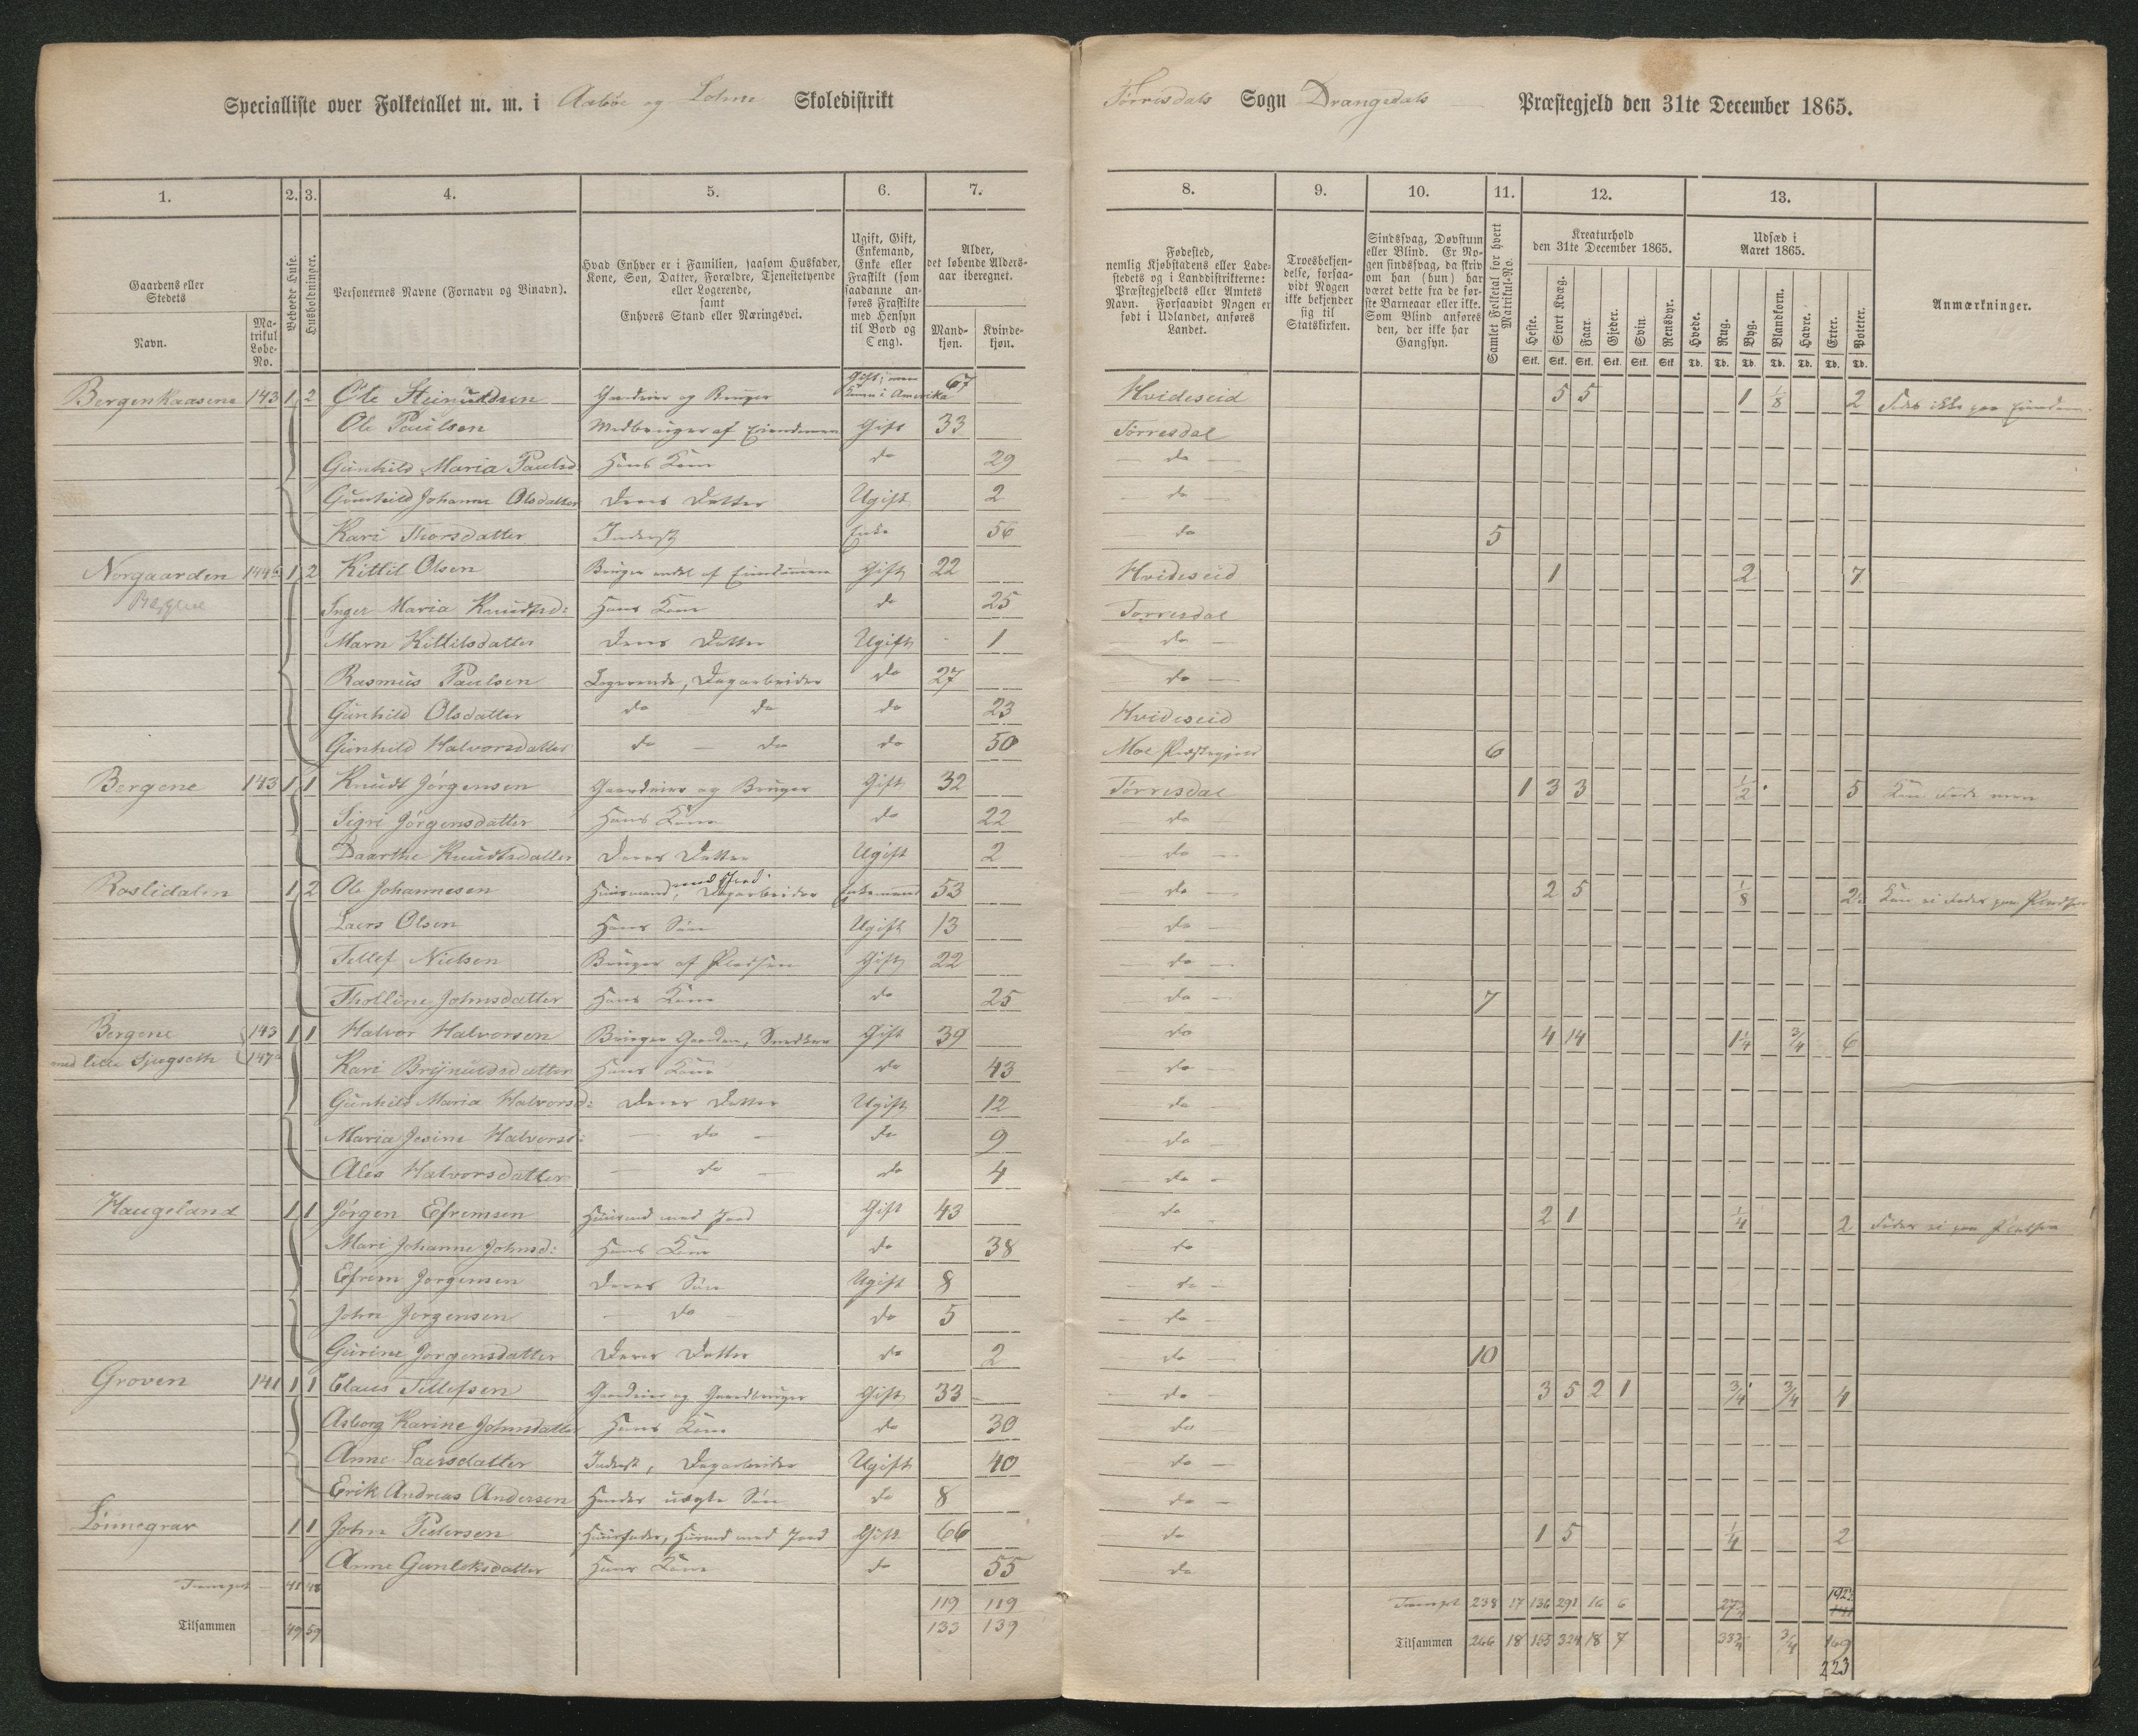 Specialliste over Folketallet m. m. i Aabøe og Lohne Skoledistrikt
Tørresdals Sogn Drangedals Præstegjeld den 31te December 1865.
1. 2. 3. 4. 5. 6. 7.
8. 9. 10. 11. 12. 13.
Gaardens eller Stedets
Navn.
Matrikul Løbe-No.
Beboede Huse.
Husholdninger.
Personernes Navne (Fornavn og Binavn).
Hvad Enhver er i Familien, saasom Husfader, Kone, Søn, Datter, Forældre, Tjenestetyende eller Logerende, samt Enhvers Stand eller Næringsvei.
Ugift, Gift, Enkemand, Enke eller Fraskilt (som saadanne anføres Fraskilte med Hensyn til Bord og Seng).
Alder, det løbende Alders-aar iberegnet.
Mand-kjøn.
Kvinde-kjøn.
Fødested, nemlig Kjøbstadens eller Ladestedets og i Landdistrikterne: Præstegjeldets eller Amtets Navn. Forsaavidt Nogen er født i Udlandet, anføres Landet.
Troesbekjendelse, forsaavidt Nogen ikke bekjender sig til Statskirken.
Sindssvag, Døvstum eller Blind. Er Nogen sindssvag, da skriv om han (hun) har været dette fra de første Barneaar eller ikke. Som Blind anføres den, der ikke har Gangsyn.
Samlet Folketal for hvert Matrikul-No.
Kreaturhold den 31te December 1865.
Heste. Stort Kvæg. Faar. Gjeder. Svin. Rensdyr.
Stk. Stk. Stk. Stk. Stk. Stk.
Udsæd i Aaret 1865.
Hvede. Rug. Byg. Blandkorn. Havre. Erter. Poteter.
Td. Td. Td. Td. Td. Td. Td.
Anmærkninger.
Bergenkaasene 143 1 2 Ole Steinuldsen Gaardeier og Bruger Gift; men Konen i Amerika 67 Hvideseid 5 5 1 1/8 2 Fødes ikke paa
Ole Paulsen Medbruger af Eiendommen Gift 33 Tørresdal
Gunhild Maria Paulsd: Hans Kone do 29 do
Gunhild Johanne Olsdatter Deres Datter Ugift 2 do
Kari Thorsdatter Inderst Enke 56 do 5
Norgaarden 144b 1 2 Kittil Olsen Bruger endel af Eiendommen Gift 22 Hvideseid 1 2 7
Inger Maria Knudtsd: Hans Kone do 25 Torresdal
Marn Kittilsdatter Deres Datter Ugift 1 do
Rasmus Paulsen Logerende, Dagarbeider do 27 do
Gunhild Olsdatter do do do 23 Hvideseid
Gunhild Halvorsdatter do do do 50 Moe Præstegjeld 6
Bergene 143 1 1 Knudt Jörgensen Gaardeier og Bruger Gift 32 Tørresdal 1 3 3 1/2 5 Kan føde
Sigri Jörgensdatter Hans Kone do 22 do
Daarthe Knudtsdatter Deres Datter Ugift 2 do
Roslidalen 1 2 Ole Johannesen Huusmand med Jord, Dagarbeider Enkemand 53 do 2 5 1/8 2 Kan ei fødes paa Pladsen
Laers Olsen Hans Søn Ugift 13 do
Tellef Nielsen Bruger af Pladsen Gift 22 do
Tholline Johnsdatter Hans Kone do 25 do 7
Bergene 143 1 1 Halvor Halvorsen Bruger Gaarden, Snedker Gift 39 do 4 14 1 1/4 3/4 6
med lille 147a Kari Brynuldsdatter Hans Kone do 43 do
Gunhild Maria Halvorsd: Deres Datter Ugift 12 do
Maria Jesine Halvorsd: do do 9 do
Ales Halvorsdatter do do 4 do
Haugeland 1 1 Jörgen Efremsen Huusmd med Jord Gift 43 do 2 1 1/4 2 Fødes ei paa Pladsen
Mari Johanne Johnsd: Hans Kone do 38 do
Efrem Jorgensen Deres Søn Ugift 8 do
John Jorgensen do do 5 do
Gurine Jorgensdatter Deres Datter do 2 do 10
Groven 141 1 1 Claus Tellefsen Gaardeier og Gaardbruger Gift 33 do 3 5 2 1 3/4 3/4 4
Asborg Karine Johnsdatter Hans Kone do 30 do
Anne Laersdatter Inderst, Dagarbeider Ugift 40 do
Erik Andreas Andersen Hendes uægte Søn do 8 do
Lönnegrav 1 1 John Pedersen Huusfader, Husmd med Jord Gift 66 do 1 5 1/4 2
Anne Gunleksdatter Hans Kone do 55 do
Transport 48 48 119 119 Transpt 238 17 136 291 16 6 27 3/4 192 141
Tilsammen 49 59 133 139 Tilsammen 266 18 155 324 18 7 33 3/4 3/4 169
223